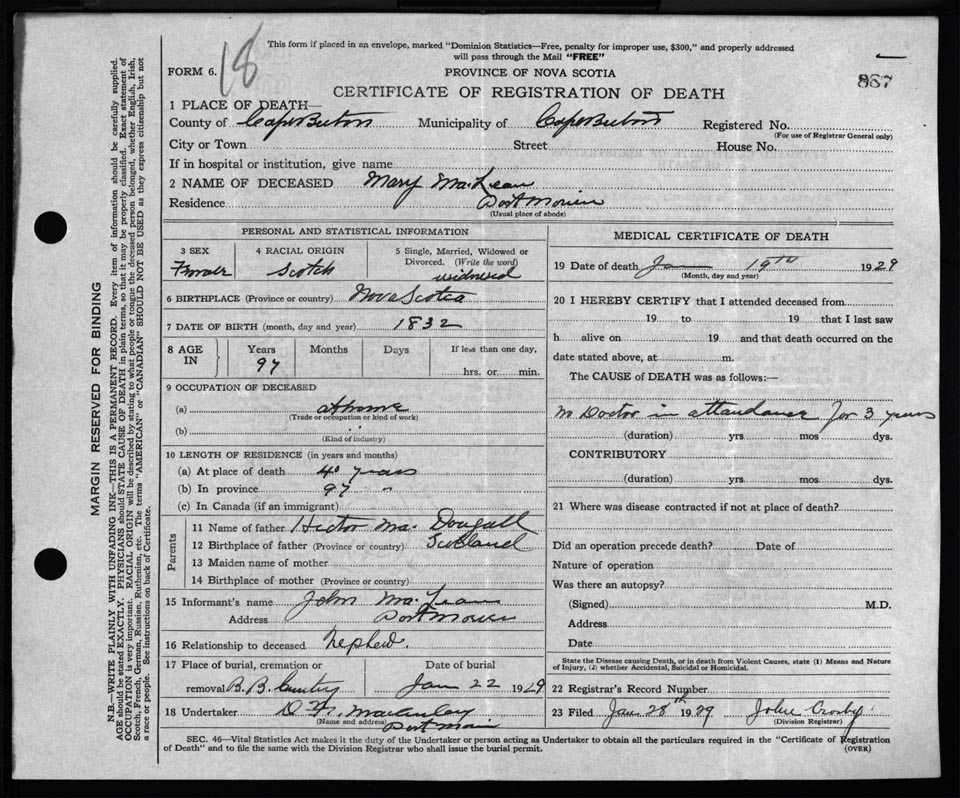 18
This form if placed in an envelope, marked "Dominion Statistics—Free, penalty for improper use, $300," and properly addressed
will pass through the Mail "FREE"
FORM 6.
PROVINCE OF NOVA SCOTIA
887
CERTIFICATE OF REGISTRATION OF DEATH
1 PLACE OF DEATH—
County of Cape Breton Municipality of Cape Breton Registered No.
(For use of Registrar General only)
City or Town Street House No.
If in hospital or institution, give name
2 NAME OF DECEASED Mary MacLean
Residence Port Morien
(Usual place of abode)
PERSONAL AND STATISTICAL INFORMATION
3 SEX 4 RACIAL ORIGIN 5 Single, Married, Widowed or
Divorced. (Write the word)
Female Scotch widowed
6 BIRTHPLACE (Province or country) Nova Scotia
7 DATE OF BIRTH (month, day and year) 1832
8 AGE IN Years Months Days If less than one day,
97 hrs. or min.
9 OCCUPATION OF DECEASED
(a) at home
(Trade or occupation or kind of work)
(b) "
(Kind of industry)
10 LENGTH OF RESIDENCE (in years and months)
(a) At place of death 40 years
(b) In province 97 "
(c) In Canada (if an immigrant)
Parents
11 Name of father Hector Mac Dougall
12 Birthplace of father (Province or country) Scotland
13 Maiden name of mother
14 Birthplace of mother (Province or country)
15 Informant's name John MacLean
Address Port Morien
16 Relationship to deceased Nephew.
17 Place of burial, cremation or Date of burial
removal B. B. Cemetery Jan 22 1929
18 Undertaker D. Macaulay
(Name and address) Port Morien
MEDICAL CERTIFICATE OF DEATH
19 Date of death Jan 19th 1929
(Month, day and year)
20 I HEREBY CERTIFY that I attended deceased from
19 to 19 that I last saw
h alive on 19 and that death occurred on the
date stated above, at m.
The CAUSE of DEATH was as follows:—
no Doctor in attendance for 3 years
(duration) yrs. mos. dys.
CONTRIBUTORY
(duration) yrs. mos. dys.
21 Where was disease contracted if not at place of death?
Did an operation precede death? Date of
Nature of operation
Was there an autopsy?
(Signed) M.D.
Address
Date
State the Disease causing Death, or in death from Violent Causes, state (1) Means and Nature
of Injury, (2) whether Accidental, Suicidal or Homicidal.
22 Registrar's Record Number
23 Filed Jan. 28th 1929 John Crosby
(Division Registrar)
SEC. 46—Vital Statistics Act makes it the duty of the Undertaker or person acting as Undertaker to obtain all the particulars required in the "Certificate of Registration
of Death" and to file the same with the Division Registrar who shall issue the burial permit. (OVER)
MARGIN RESERVED FOR BINDING
N.B.—WRITE PLAINLY WITH UNFADING INK—THIS IS A PERMANENT RECORD. Every item of information should be carefully supplied.
AGE should be stated EXACTLY. PHYSICIANS should STATE CAUSE OF DEATH in plain terms, so that it may be properly classified. Exact statement of
OCCUPATION is very important. RACIAL ORIGIN will be described by stating to what people or tongue the deceased person belonged, whether English, Irish,
Scotch, French, German, Russian, Ruthenian, etc. The terms "AMERICAN" or "CANADIAN" SHOULD NOT BE USED as they express citizenship but not
a race or people. See instructions on back of Certificate.